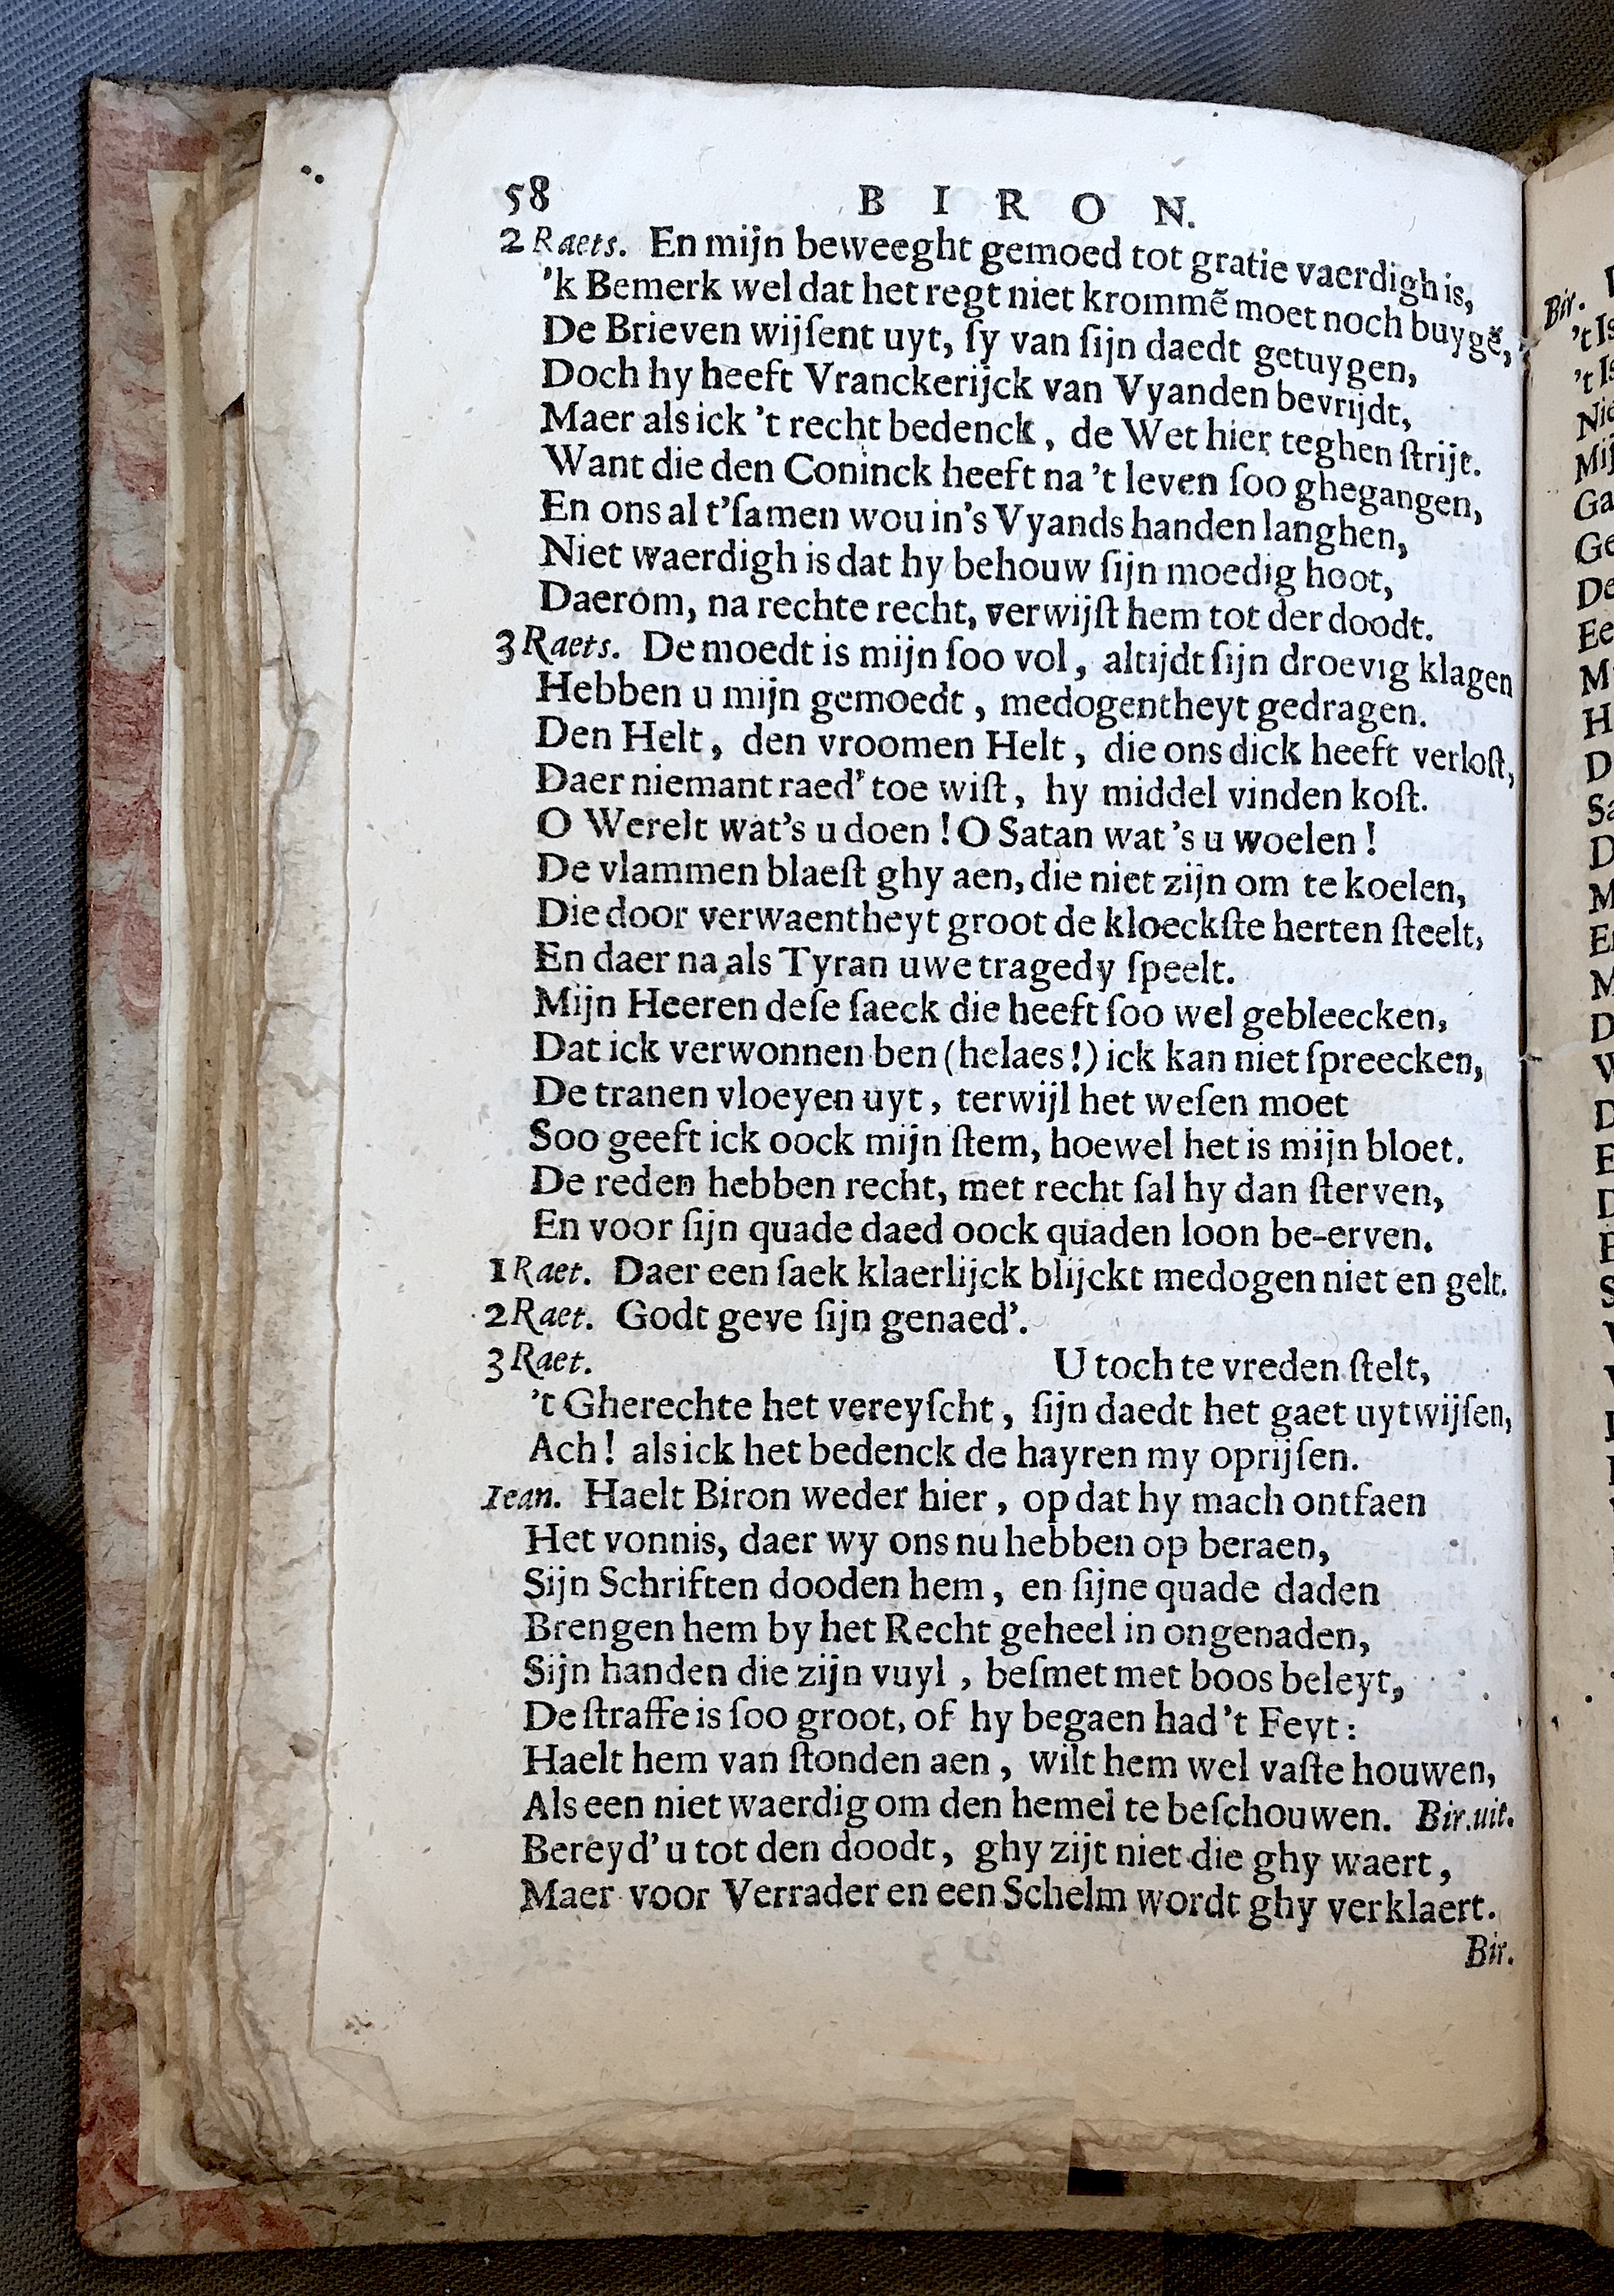 58 BIRON.
2 Raets. En mijn beweeght gemoed tot gratie vaerdigh is,
'k Bemerk wel dat het regt niet krommẽ moet noch buygẽ,
De Brieven wijſent uyt, ſy van ſijn daedt getuygen,
Doch hy heeft Vranckerijck van Vyanden bevrijdt,
Maer als ick 't recht bedenck, de Wet hier teghen ſtrijt.
Want die den Coninck heeft na 't leven ſoo ghegangen,
En ons al t'ſamen wou in's Vyands handen langhen,
Niet waerdigh is dat hy behouw ſijn moedig hoot,
Daerom, na rechte recht, verwijſt hem tot der doodt.
3 Raets. De moedt is mijn ſoo vol, altijdt ſijn droevig klagen
Hebben u mijn gemoedt, medogentheyt gedragen.
Den Helt, den vroomen Helt, die ons dick heeft verloſt,
Daer niemant raed' toe wiſt, hy middel vinden koſt.
O Werelt wat's u doen! O Satan wat's u woelen!
De vlammen blaeſt ghy aen, die niet zijn om te koelen,
Die door verwaentheyt groot de kloeckſte herten ſteelt,
En daer na als Tyran uwe tragedy ſpeelt.
Mijn Heeren deſe ſaeck die heeft ſoo wel gebleecken,
Dat ick verwonnen ben (helaes!) ick kan niet ſpreecken,
De tranen vloeyen uyt, terwijl het weſen moet
Soo geeft ick oock mijn ſtem, hoewel het is mijn bloet.
De reden hebben recht, met recht ſal hy dan ſterven,
En voor ſijn quade daed oock quaden loon be-erven.
1 Raet. Daer een ſaek klaerlijck blijckt medogen niet en gelt.
2 Raet. Godt geve ſijn genaed'.
3 Raet. U toch te vreden ſtelt,
't Gherechte het vereyſcht, ſijn daedt het gaet uytwijſen,
Ach! als ick het bedenck de hayren my oprijſen.
Iean. Haelt Biron weder hier, op dat hy mach ontfaen
Het vonnis, daer wy ons nu hebben op beraen,
Sijn Schriften dooden hem, en ſijne quade daden
Brengen hem by het Recht geheel in ongenaden,
Sijn handen die zijn vuyl, beſmet met boos beleyt,
De ſtraffe is ſoo groot, of hy begaen had 't Feyt:
Haelt hem van ſtonden aen, wilt hem wel vaſte houwen,
Als een niet waerdig om den hemel te beſchouwen. Bir.uit.
Bereyd' u tot den doodt, ghy zijt niet die ghy waert,
Maer voor Verrader en een Schelm wordt ghy verklaert.
Bir.
Bir.